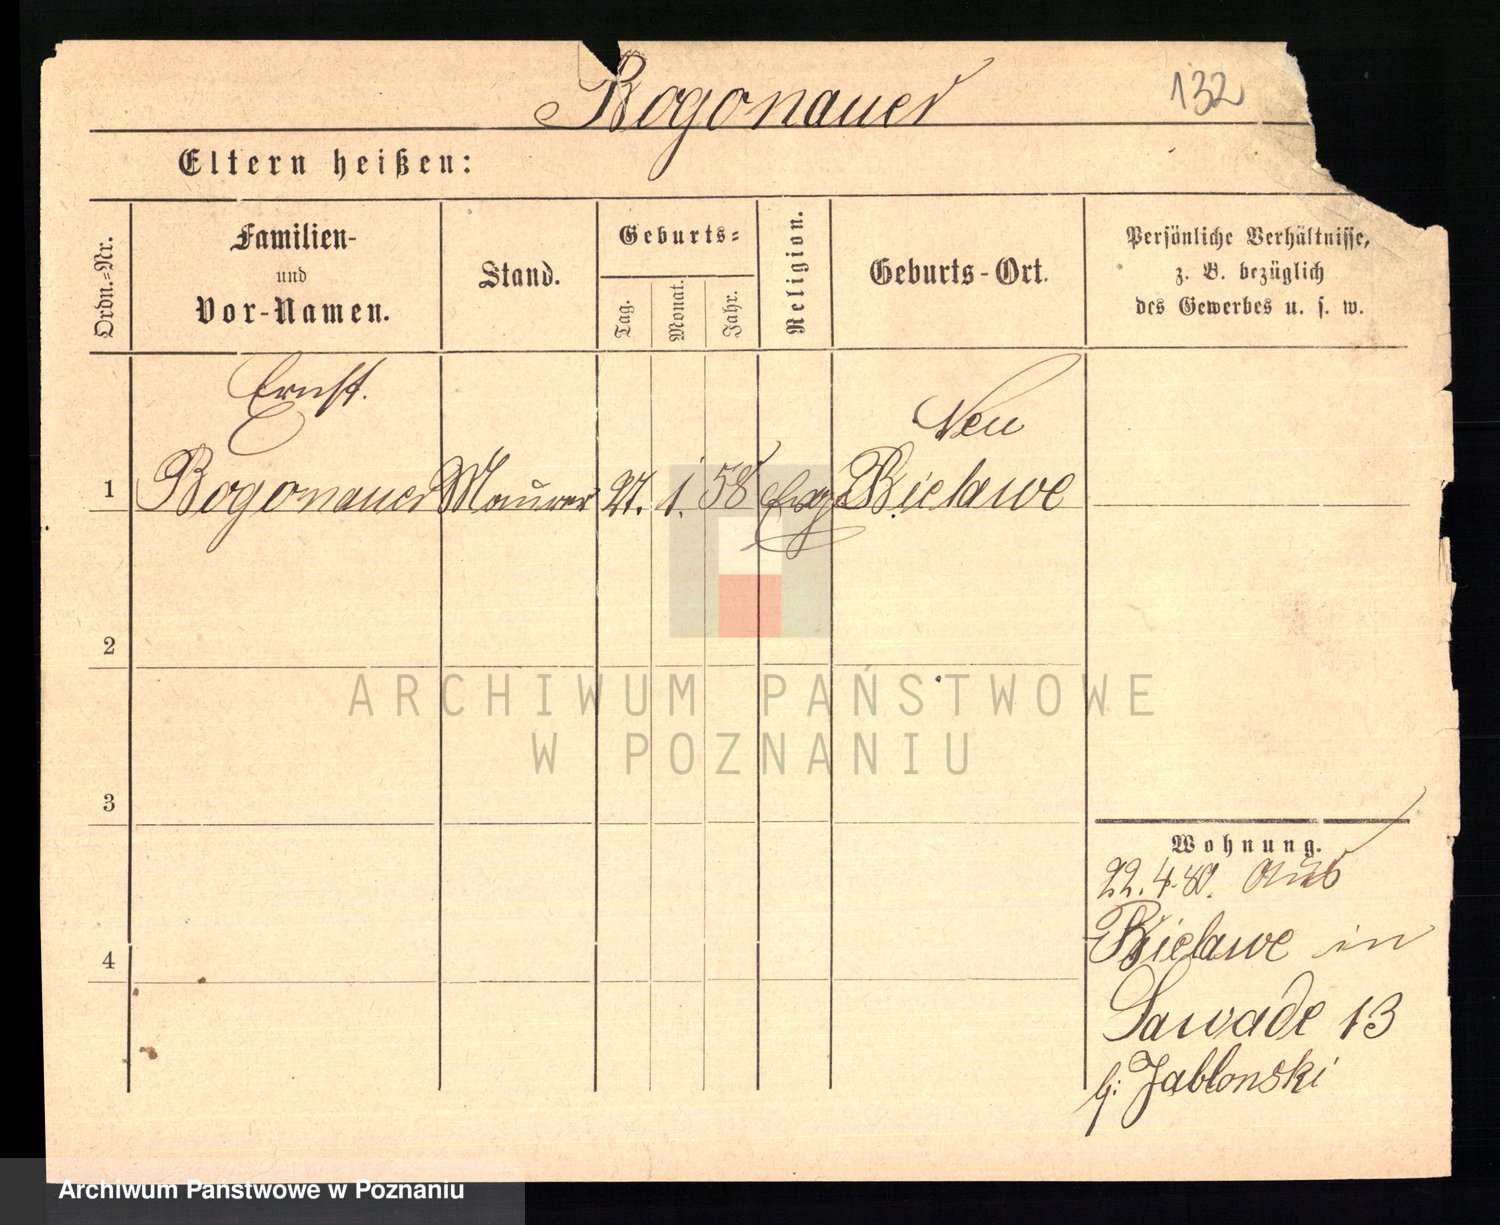 Bogonauer
132
Eltern heißen:
Ordn.-Nr.
Familien-
und
Vor-Namen.
Stand.
Geburts-
Tag.
Monat.
Jahr.
Religion.
Geburts-Ort.
Persönliche Verhältnisse,
z. B. bezüglich
des Gewerbes u. s. w.
Ernst.
Neu
1 Bogonauer Maurer 1. 58 Evg Bielawe
2
ARCHIWUM PAŃSTWOWE
W POZNANIU
3
Wohnung.
22. 4. 80. aus
Bielawe in
4
Sawade 13
b: Jablonski
Archiwum Państwowe w Poznaniu